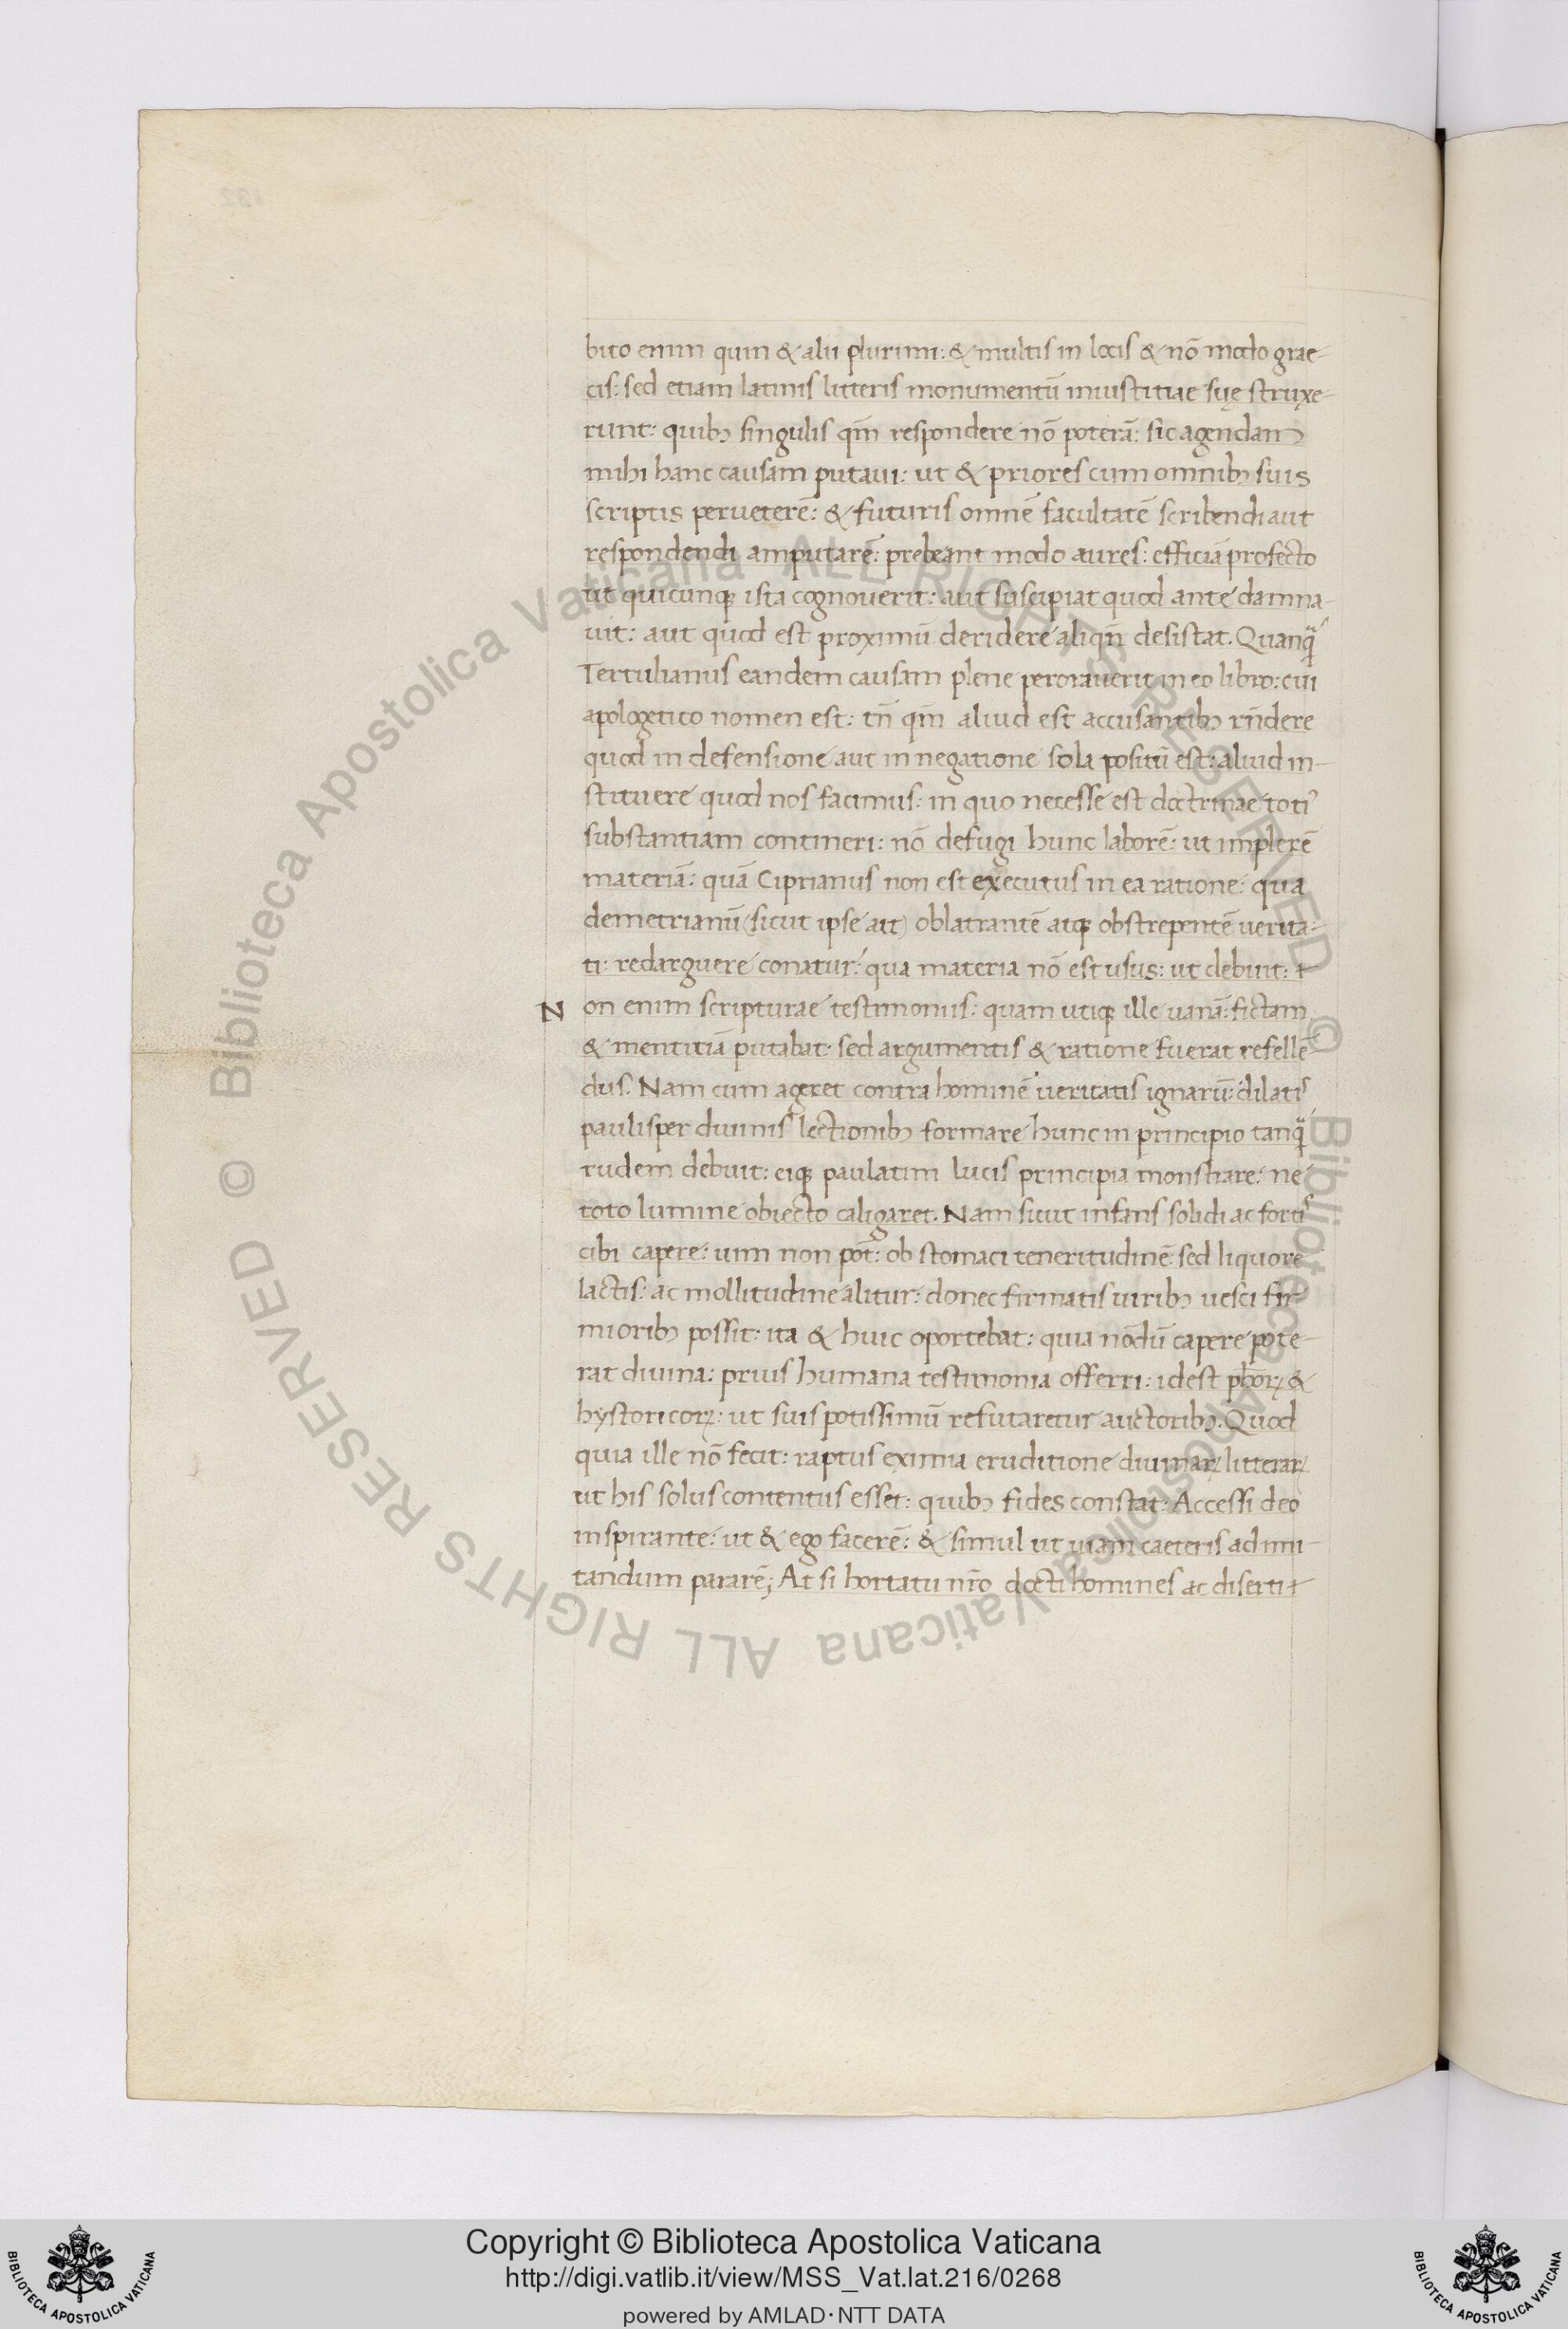 bito enim quin & alii plurimi: & multis in locis & nō modo grae-
cis: sed etiam latinis litteris monumentū iniustitiae suę struxe-
runt: quibꝫ singulis qm̄ respondere nō poterā: sic agendam
mihi hanc causam putaui: ut & priores cum omnibꝫ suis
scriptis perueterē: & futuris omnē facultatē scribendi aut
respondendi amputarē: prebeant modo aures: efficiā profecto
ut quicunqꝫ ista cognouerit: aut suscipiat quod ante damna-
uit: aut quod est proximū deridere aliqn̄ desistat. Quanqꝫ
Tertulianus eandem causam plene perorauerit in eo libro: cui
apologetico nomen est: tn̄ qm̄ aliud est accusantibꝫ rn̄dere
quod in defensione aut in negatione sola positū est: aliud in-
stituere quod nos facimus: in quo necesse est doctrinae toti⁹
substantiam contineri: nō defugi hunc laborē: ut implerē
materiā: quā Ciprianus non est executus in ea ratione: qua
demetrianū (sicut ipse ait) oblatrantē atqꝫ obstrepentē uerita-
ti: redarguere conatur: qua materia nō est usus: ut debuit:
Non enim scripturae testimoniis: quam utiqꝫ ille uanā: fictam
& mentitiā putabat: sed argumentis & ratione fuerat refellē-
dus. Nam cum ageret contra hominē ueritatis ignarū: dilatis
paulisper diuinis lectionibꝫ formare hunc in principio tanqꝫ
rudem debuit: eiqꝫ paulatim lucis principia monstrare: ne
toto lumine obiecto caligaret. Nam sicut infans solidi ac fortis
cibi capere: uim non pōt: ob stomaci teneritudinē: sed liquore
lactis: ac mollitudine alitur: donec firmatis uiribꝫ uesci fir-
mioribꝫ possit: ita & huic oportebat: quia nōdū capere pote-
rat diuina: prius humana testimonia offerri: idest ph̄orꝝ &
hystoricorꝝ: ut suis potissimū refutaretur auctoribꝫ. Quod
quia ille nō fecit: raptus eximia eruditione diuinarꝝ litterarꝝ
ut his solus contentus esset: quibꝫ fides constat: Accessi deo
inspirante: ut & ego facerē: & simul ut uiam caeteris ad imi-
tandum pararē; At si hortatu nr̄o docti homines ac diserti
Copyright © Biblioteca Apostolica Vaticana
http://digi.vatlib.it/view/MSS_Vat.lat.216/0268
powered by AMLAD·NTT DATA
© Biblioteca Apostolica Vaticana ALL RIGHTS RESERVED © Biblioteca Apostolica Vaticana ALL RIGHTS RESERVED
BIBLIOTECA APOSTOLICA VATICANA
BIBLIOTECA APOSTOLICA VATICANA